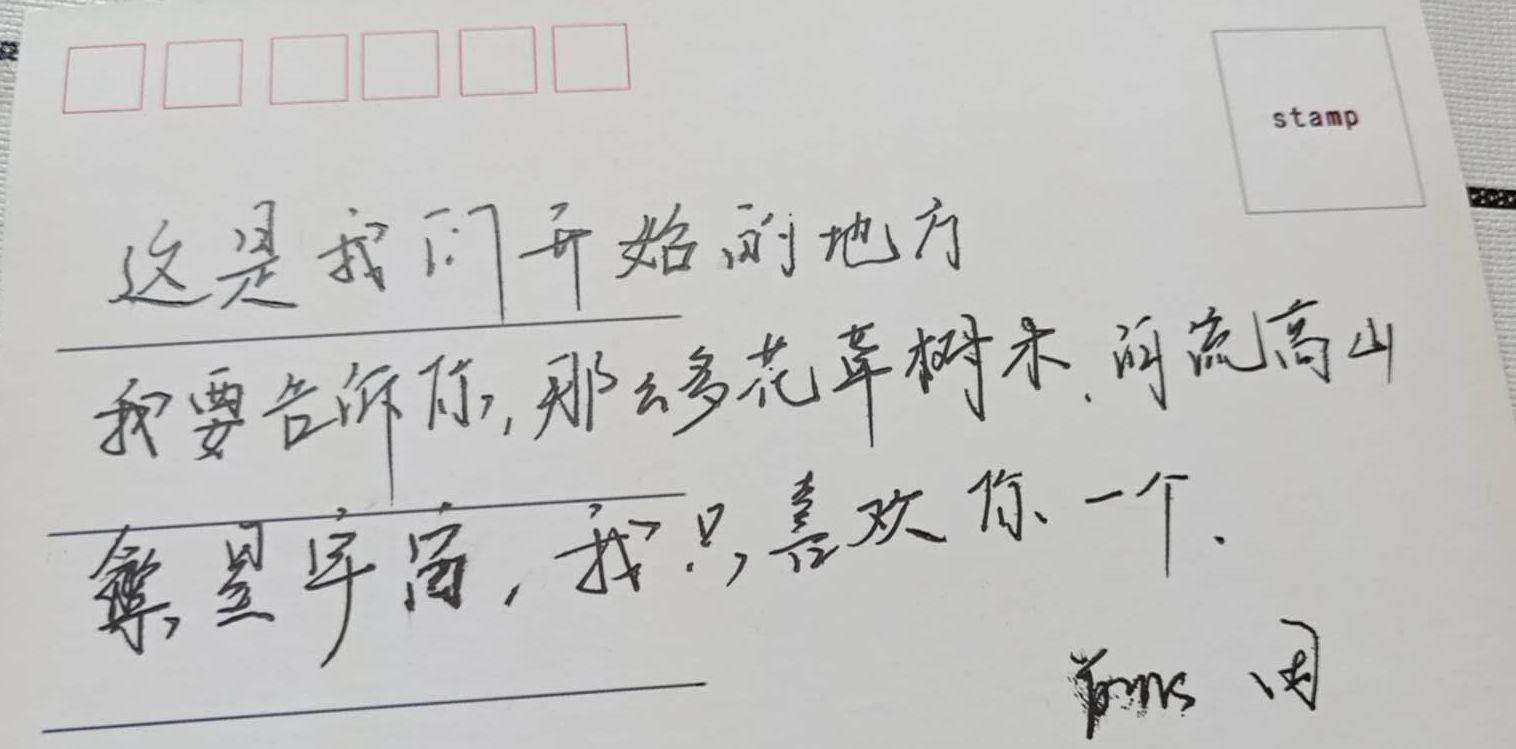 stamp
这是我们开始的地方
我要告诉你,那么多花草树木.河流高山
繁星宇宙,我只喜欢你一个.
周